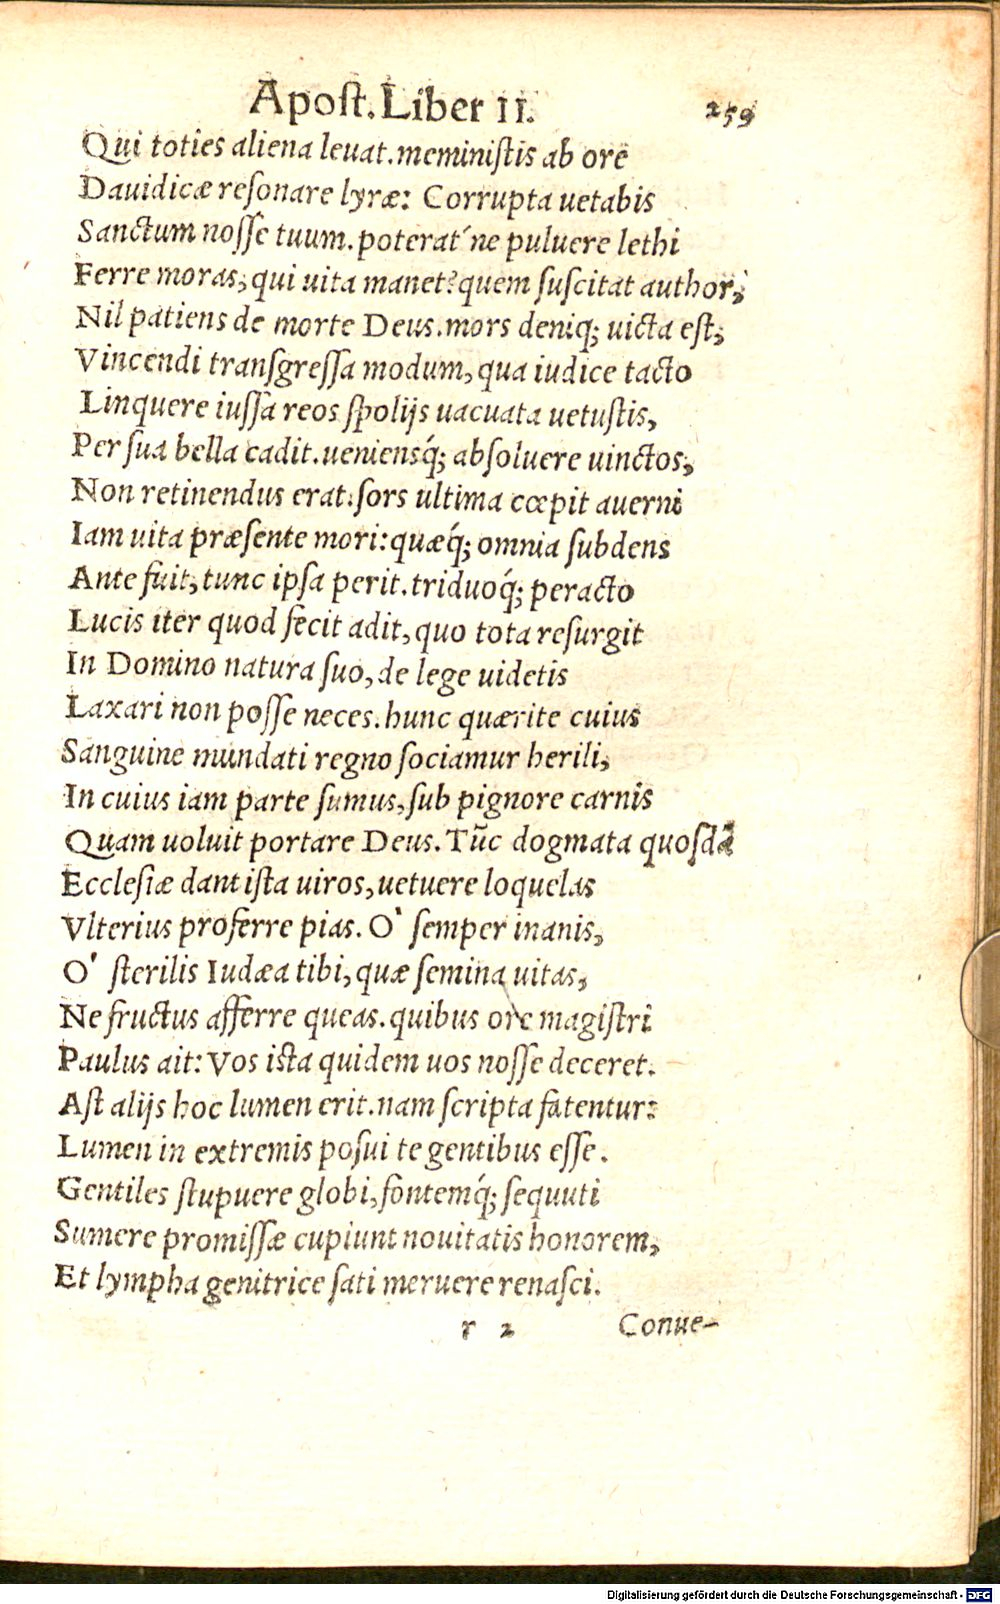 Apost. Liber II. 259
Qui toties aliena leuat. meministis ab ore
Dauidicæ resonare lyræ: Corrupta uetabis
Sanctum nosse tuum. poterat´ne puluere lethi
Ferre moras, qui uita manet? quem suscitat author,
Nil patiens de morte Deus. mors deniq; uicta est,
Vincendi transgressa modum, qua iudice tacto
Linquere iussa reos spolijs uacuata uetustis,
Per sua bella cadit. ueniensq́; absoluere uinctos,
Non retinendus erat. sors ultima cœpit auerni
Iam uita præsente mori: quæq́; omnia subdens
Ante fuit, tunc ipsa perit. triduoq́; peracto
Lucis iter quod fecit adit, quo tota resurgit
In Domino natura suo, de lege uidetis
Laxari non posse neces. hunc quærite cuius
Sanguine mundati regno sociamur herili,
In cuius iam parte sumus, sub pignore carnis
Quam uoluit portare Deus. Tūc dogmata quosdā
Ecclesiæ dant ista uiros, uetuere loquelas
Vlterius proferre pias. O` semper inanis,
O' sterilis Iudæa tibi, quæ semina uitas,
Ne fructus afferre queas. quibus ore magistri
Paulus ait: Vos ista quidem uos nosse deceret.
Ast alijs hoc lumen erit. nam scripta fatentur:
Lumen in extremis posui te gentibus esse.
Gentiles stupuere globi, fontemq́; sequuti
Sumere promissæ cupiunt nouitatis honorem,
Et lympha genitrice sati meruere renasci.
r 2 Conue-
Digitalisierung gefördert durch die Deutsche Forschungsgemeinschaft - DFG